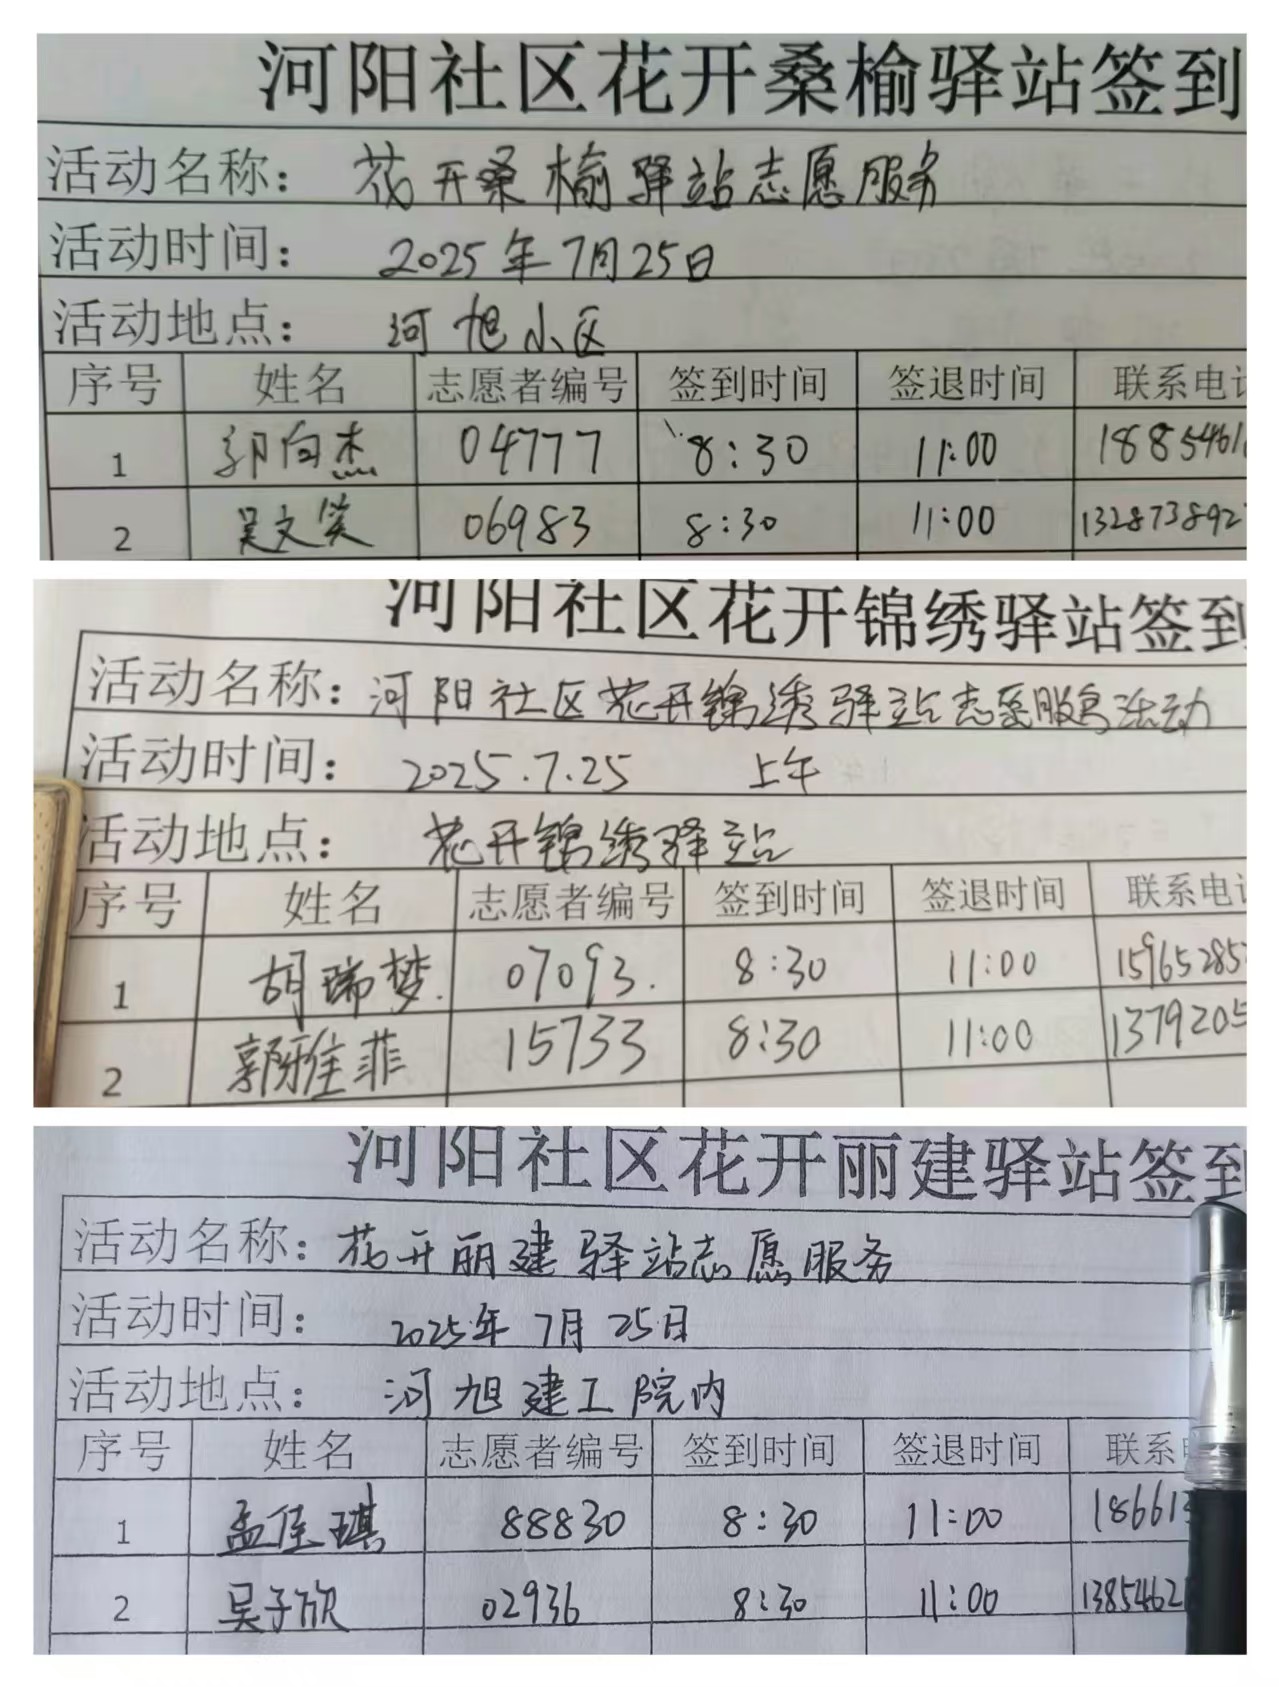 河阳社区花开桑榆驿站签到
活动名称： 花开桑榆驿站志愿服务
活动时间： 2025年7月25日
活动地点： 河旭小区
序号 姓名 志愿者编号 签到时间 签退时间 联系电
1 郭向杰 04777 8:30 11:00 1885461
2 吴文笑 06983 8:30 11:00 1328738927
河阳社区花开锦绣驿站签到
活动名称： 河阳社区花开锦绣驿站志愿服务活动
活动时间： 2025.7.25 上午
活动地点： 花开锦绣驿站
序号 姓名 志愿者编号 签到时间 签退时间 联系电
1 胡瑞梦. 07093. 8:30 11:00 15965285
2 郭雅菲 15733 8:30 11:00 1379205
河阳社区花开丽建驿站签到
活动名称： 花开丽建驿站志愿服务
活动时间： 2025年7月25日
活动地点： 河旭建工院内
序号 姓名 志愿者编号 签到时间 签退时间 联系
1 孟佳琪 88830 8:30 11:00 18661
2 吴子欣 02936 8:30 11:00 13854621